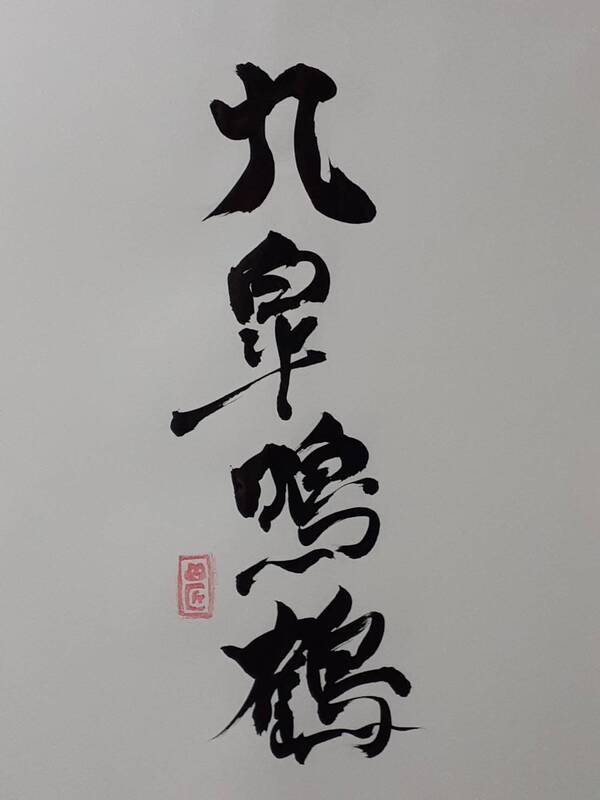 九皐鳴鶴